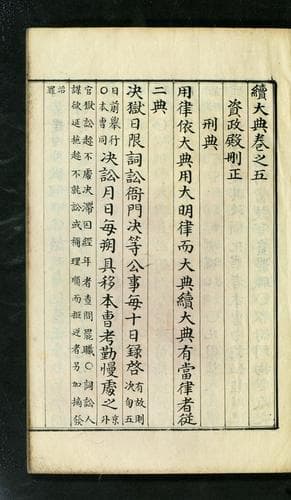 續大典卷之五
資政殿刪正
刑典
用律依大典用大明律而大典續大典有當律者從
二典
决獄日限詞訟衙門決等公事每十日錄啓有故則次旬五
日前舉行○本曹司决訟月日每朔具移本曹考勤慢處之京外
官獄訟趁不 决滯囚經年者查問罷職○詞訟人
謀欲延拖趁不就訟或 理順而拒逆者另加摘發
治罪